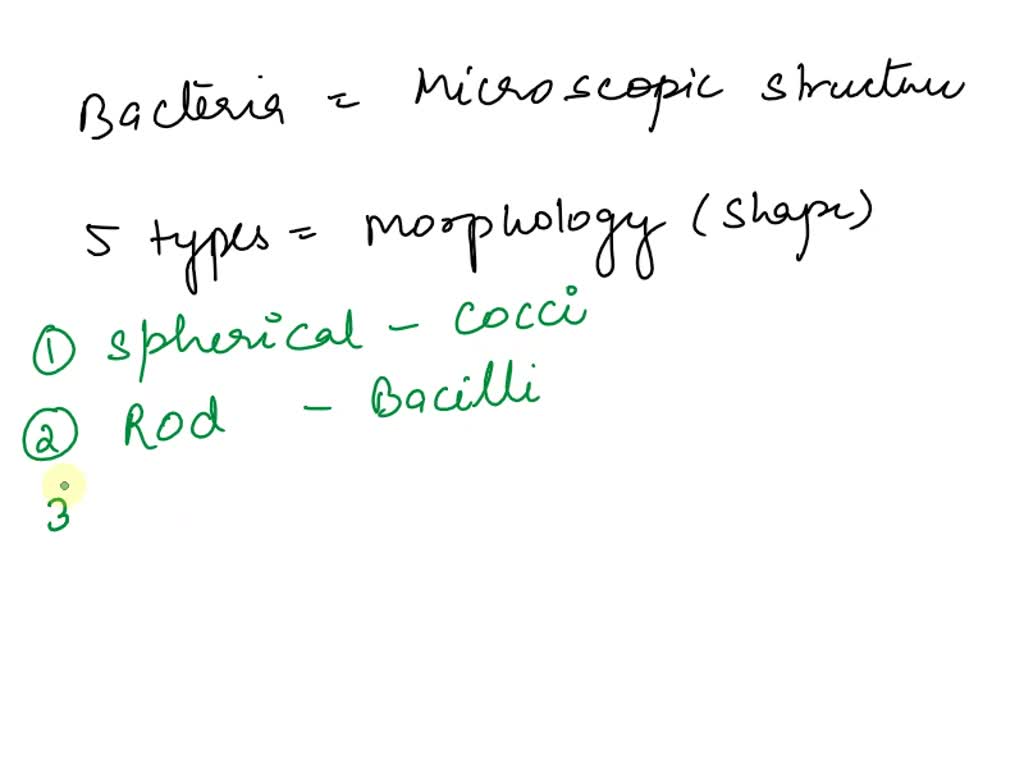 Bacteria = Microscopic structure
5 types = Morphology (Shape)
① Spherical - Cocci
② Rod - Bacilli
3